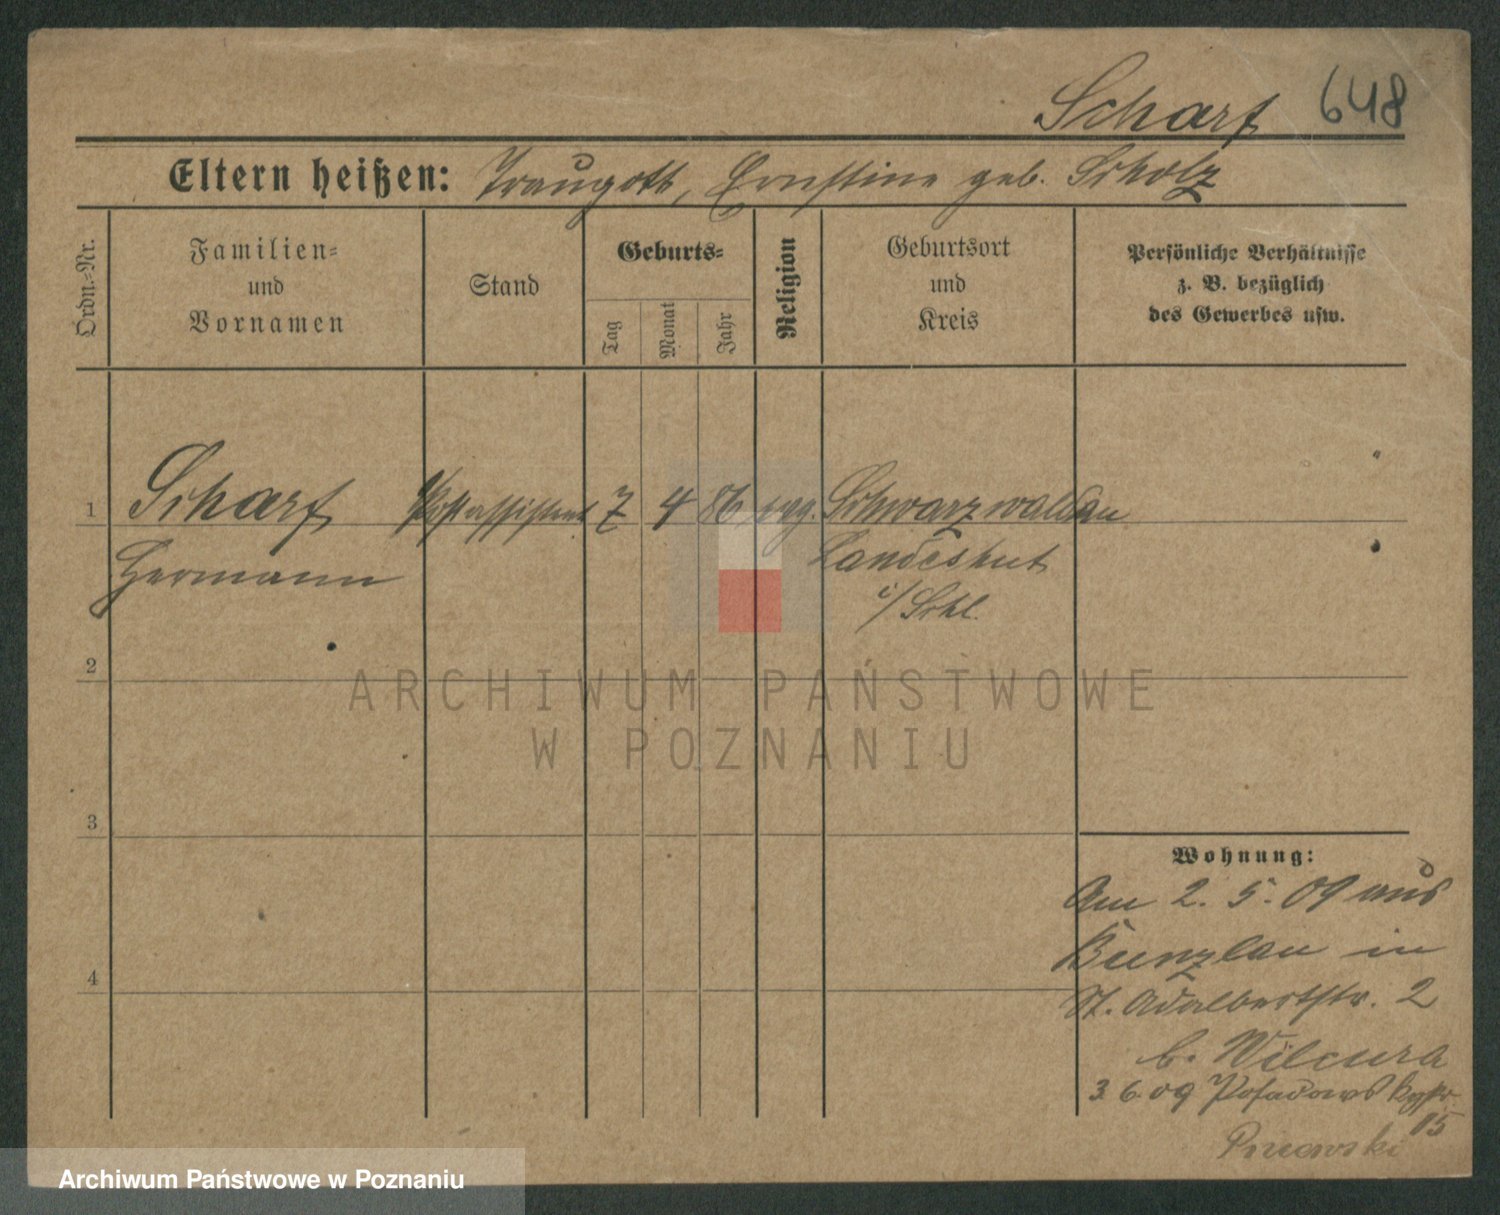 Scharf 648
Eltern heißen: Traugott, Ernstine geb. Scholz
Ordn.-Nr.
Familien-
und
Vornamen
Stand
Geburts-
Tag
Monat
Jahr
Religion
Geburtsort
und
Kreis
Persönliche Verhältnisse
z. B. bezüglich
des Gewerbes usw.
1 Scharf Postassistent 7 4 86 evg. Schwarzwaldau
Hermann Landeshut
i/Schl.
2
3
4
Wohnung:
Am 2. 5. 09 aus
Bunzlau in
St. Adalbertstr. 2
b. Wilcura
3. 6. 09 Posadowskystr.
15
ARCHIWUM PAŃSTWOWE
W POZNANIU
Archiwum Państwowe w Poznaniu